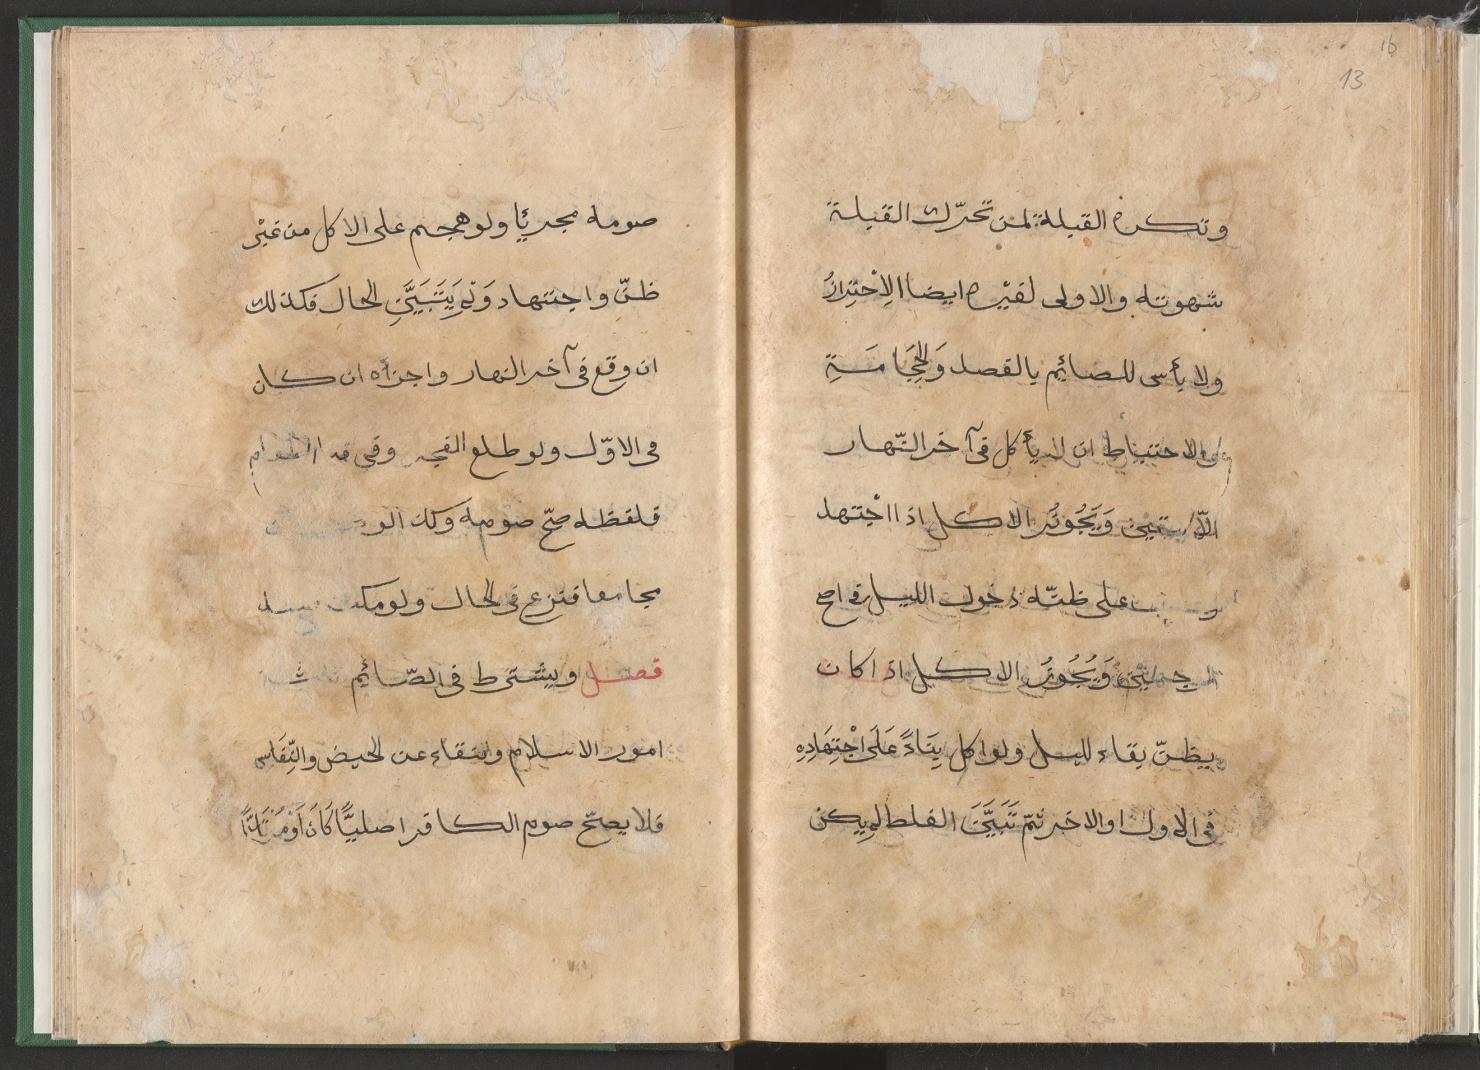 16
13
وتكره القبلة لمن تحرّك القبلة
شهوته والاولى لغيْره ايضا الِاحْتِرازُ
ولا بأس للصائم بالفصد وَالحِجَامَةِ
والاحتياط ان لا يأكل فى آخر النّهار
الّا بيقين وَيَجُوزُ الاكل اذا اجْتهد
على ظنّه دخول الليل فى اصح
وَيَجُوزُ الاكل اذا كان
يظنّ بقاء الليل ولو اكل بِنَاءً عَلَى اجْتِهَادِهِ
فى الاول او الاخر ثمّ تَبَيَّنَ الغلط لم يكن
صومه مجزيًا ولو هجم على الاكل من غيْر
ظنّ واجتهاد وَلم يَتَبَيَّنِ الحال فكذلك
ان وقع فى آخر النهار واجزأه ان كان
فى الاوّل ولو طلع الفجر وفى فمه الطعام
فلفظه صحّ صومه وكذا لو
مجامعا فنزع فى الحال ولو مكث
فصل ويشترط فى الصّائم
امور الاسلام والنقاء عن الحيض والنِّفَاس
فلا يصحّ صوم الكافر اصليًّا كَانَ اَوْ مُرْتَدًّا